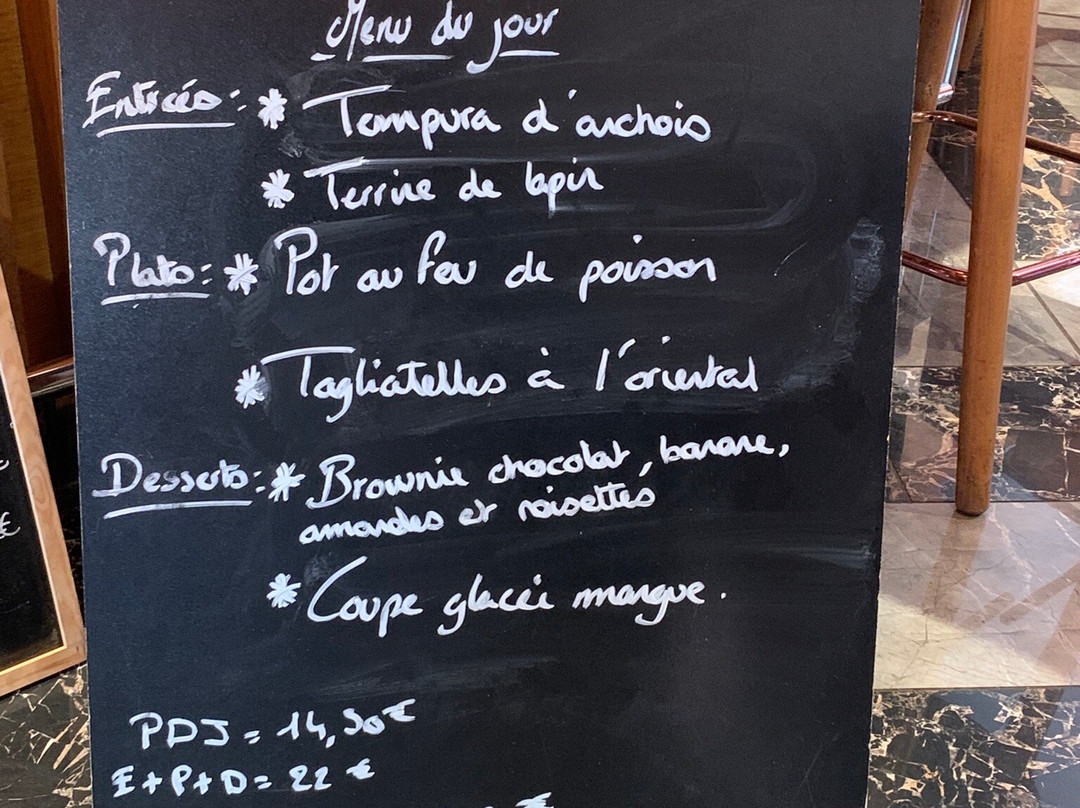 Menu du jour
Entrées: * Tempura d'anchois
* Terrine de lapin
Plats: * Pot au feu de poisson
* Tagliatelles à l'oriental
Desserts: * Brownie chocolat, banane,
amandes et noisettes
* Coupe glacée mangue.
PDJ = 14,50€
E+P+D= 22 €
€
€